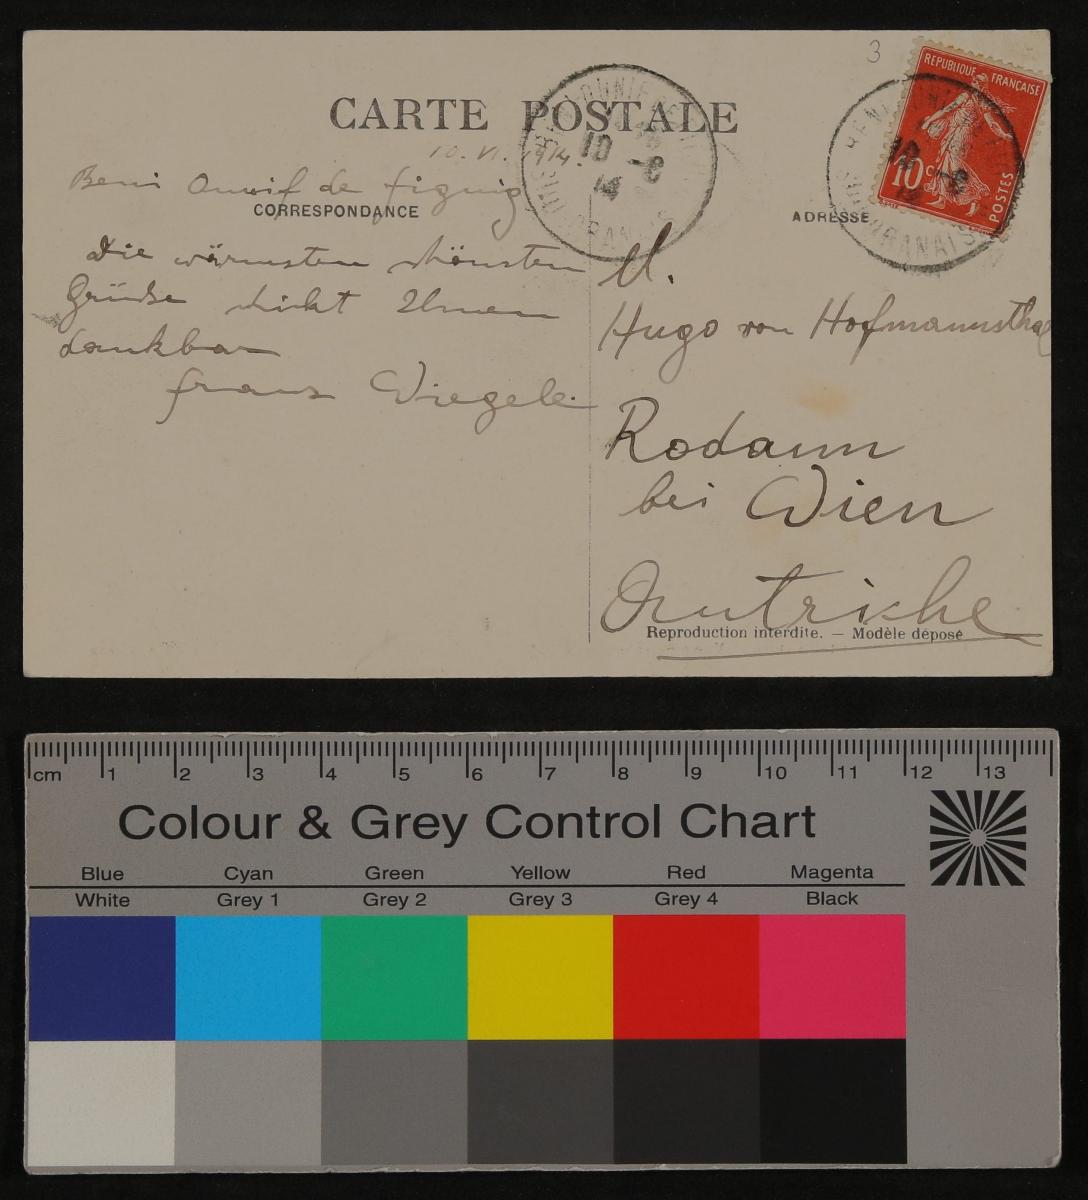 3
CARTE POSTALE
10. VI. 1914.
Beni Ounif de Figuig
CORRESPONDANCE
Die wärmsten schönsten
Grüße schickt Ihnen
dankbar
Franz Wiegele
ADRESSE
M.
Hugo von Hofmannsthal
Rodaun
bei Wien
Autriche
Reproduction interdite. — Modèle déposé
REPUBLIQUE FRANÇAISE
10 c
POSTES
10 -6
14
SUD ORANAIS
BENI OUNIF
10 -6
14
SUD ORANAIS
cm 1 2 3 4 5 6 7 8 9 10 11 12 13
Colour & Grey Control Chart
Blue Cyan Green Yellow Red Magenta
White Grey 1 Grey 2 Grey 3 Grey 4 Black